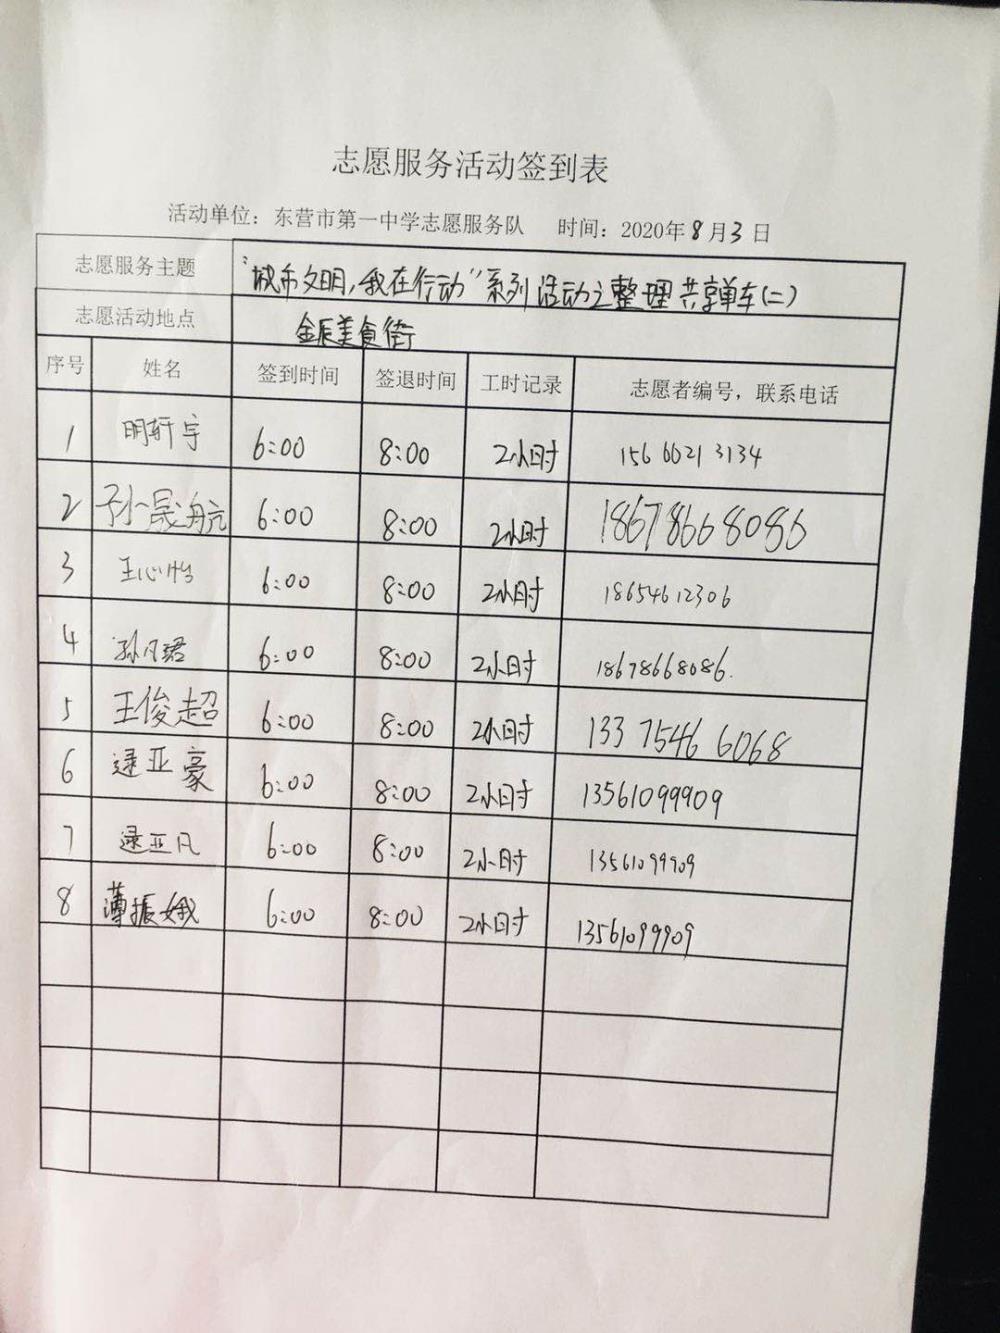 志愿服务活动签到表
活动单位：东营市第一中学志愿服务队 时间：2020年8月3日
志愿服务主题 “城市文明，我在行动”系列活动之整理共享单车(二)
志愿活动地点 金辰美食街
序号 姓名 签到时间 签退时间 工时记录 志愿者编号，联系电话
1 明轩宇 6:00 8:00 2小时 156 6021 3134
2 孙晟航 6:00 8:00 2小时 18678668086
3 王心怡 6:00 8:00 2小时 18654612306
4 孙凡珺 6:00 8:00 2小时 18678668086.
5 王俊超 6:00 8:00 2小时 133 7546 6068
6 逯亚豪 6:00 8:00 2小时 13561099909
7 逯亚凡 6:00 8:00 2小时 13561099909
8 薄振娥 6:00 8:00 2小时 13561099909